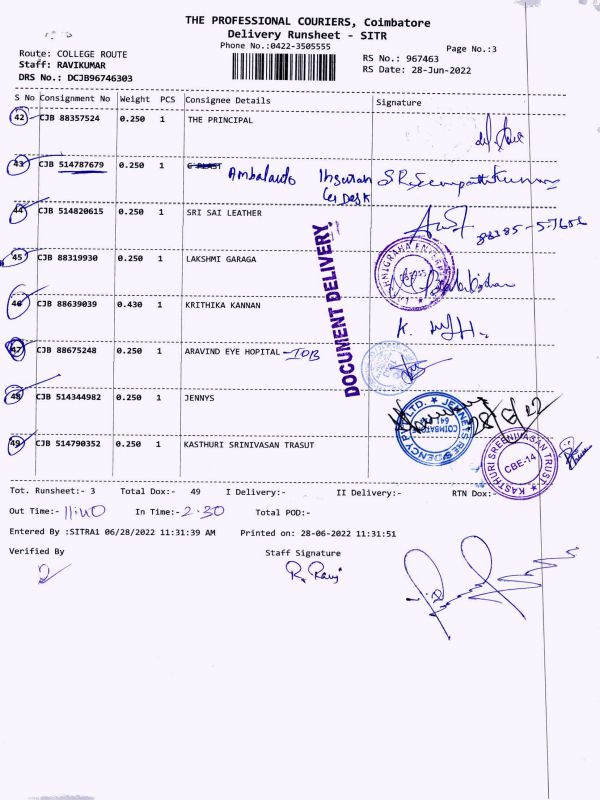 THE PROFESSIONAL COURIERS, Coimbatore
Delivery Runsheet - SITR
Phone No.:0422-3505555
Page No.:3
Route: COLLEGE ROUTE
Staff: RAVIKUMAR
DRS No.: DCJB96746303
RS No.: 967463
RS Date: 28-Jun-2022
S No Consignment No Weight PCS Consignee Details Signature
42 CJB 88357524 0.250 1 THE PRINCIPAL
43 CJB 514787679 0.250 1 Ambalauto Insuran
ce Desk
44 CJB 514820615 0.250 1 SRI SAI LEATHER
45 CJB 88319930 0.250 1 LAKSHMI GARAGA
46 CJB 88639039 0.430 1 KRITHIKA KANNAN
47 CJB 88675248 0.250 1 ARAVIND EYE HOPITAL - IOB
48 CJB 514344982 0.250 1 JENNYS
49 CJB 514790352 0.250 1 KASTHURI SRINIVASAN TRASUT
DOCUMENT DELIVERY
KASTHURI SREENIVASAN TRUST
CBE-14
Tot. Runsheet:- 3 Total Dox:- 49 I Delivery:- II Delivery:- RTN Dox:-
Out Time:- 11:40 In Time:- 2.30 Total POD:-
Entered By :SITRA1 06/28/2022 11:31:39 AM Printed on: 28-06-2022 11:31:51
Verified By Staff Signature
R. Ravi